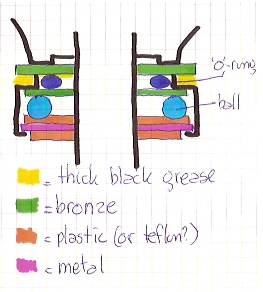 'o'-ring
ball
= thick black grease
= bronze
= plastic (or teflon?)
= metal